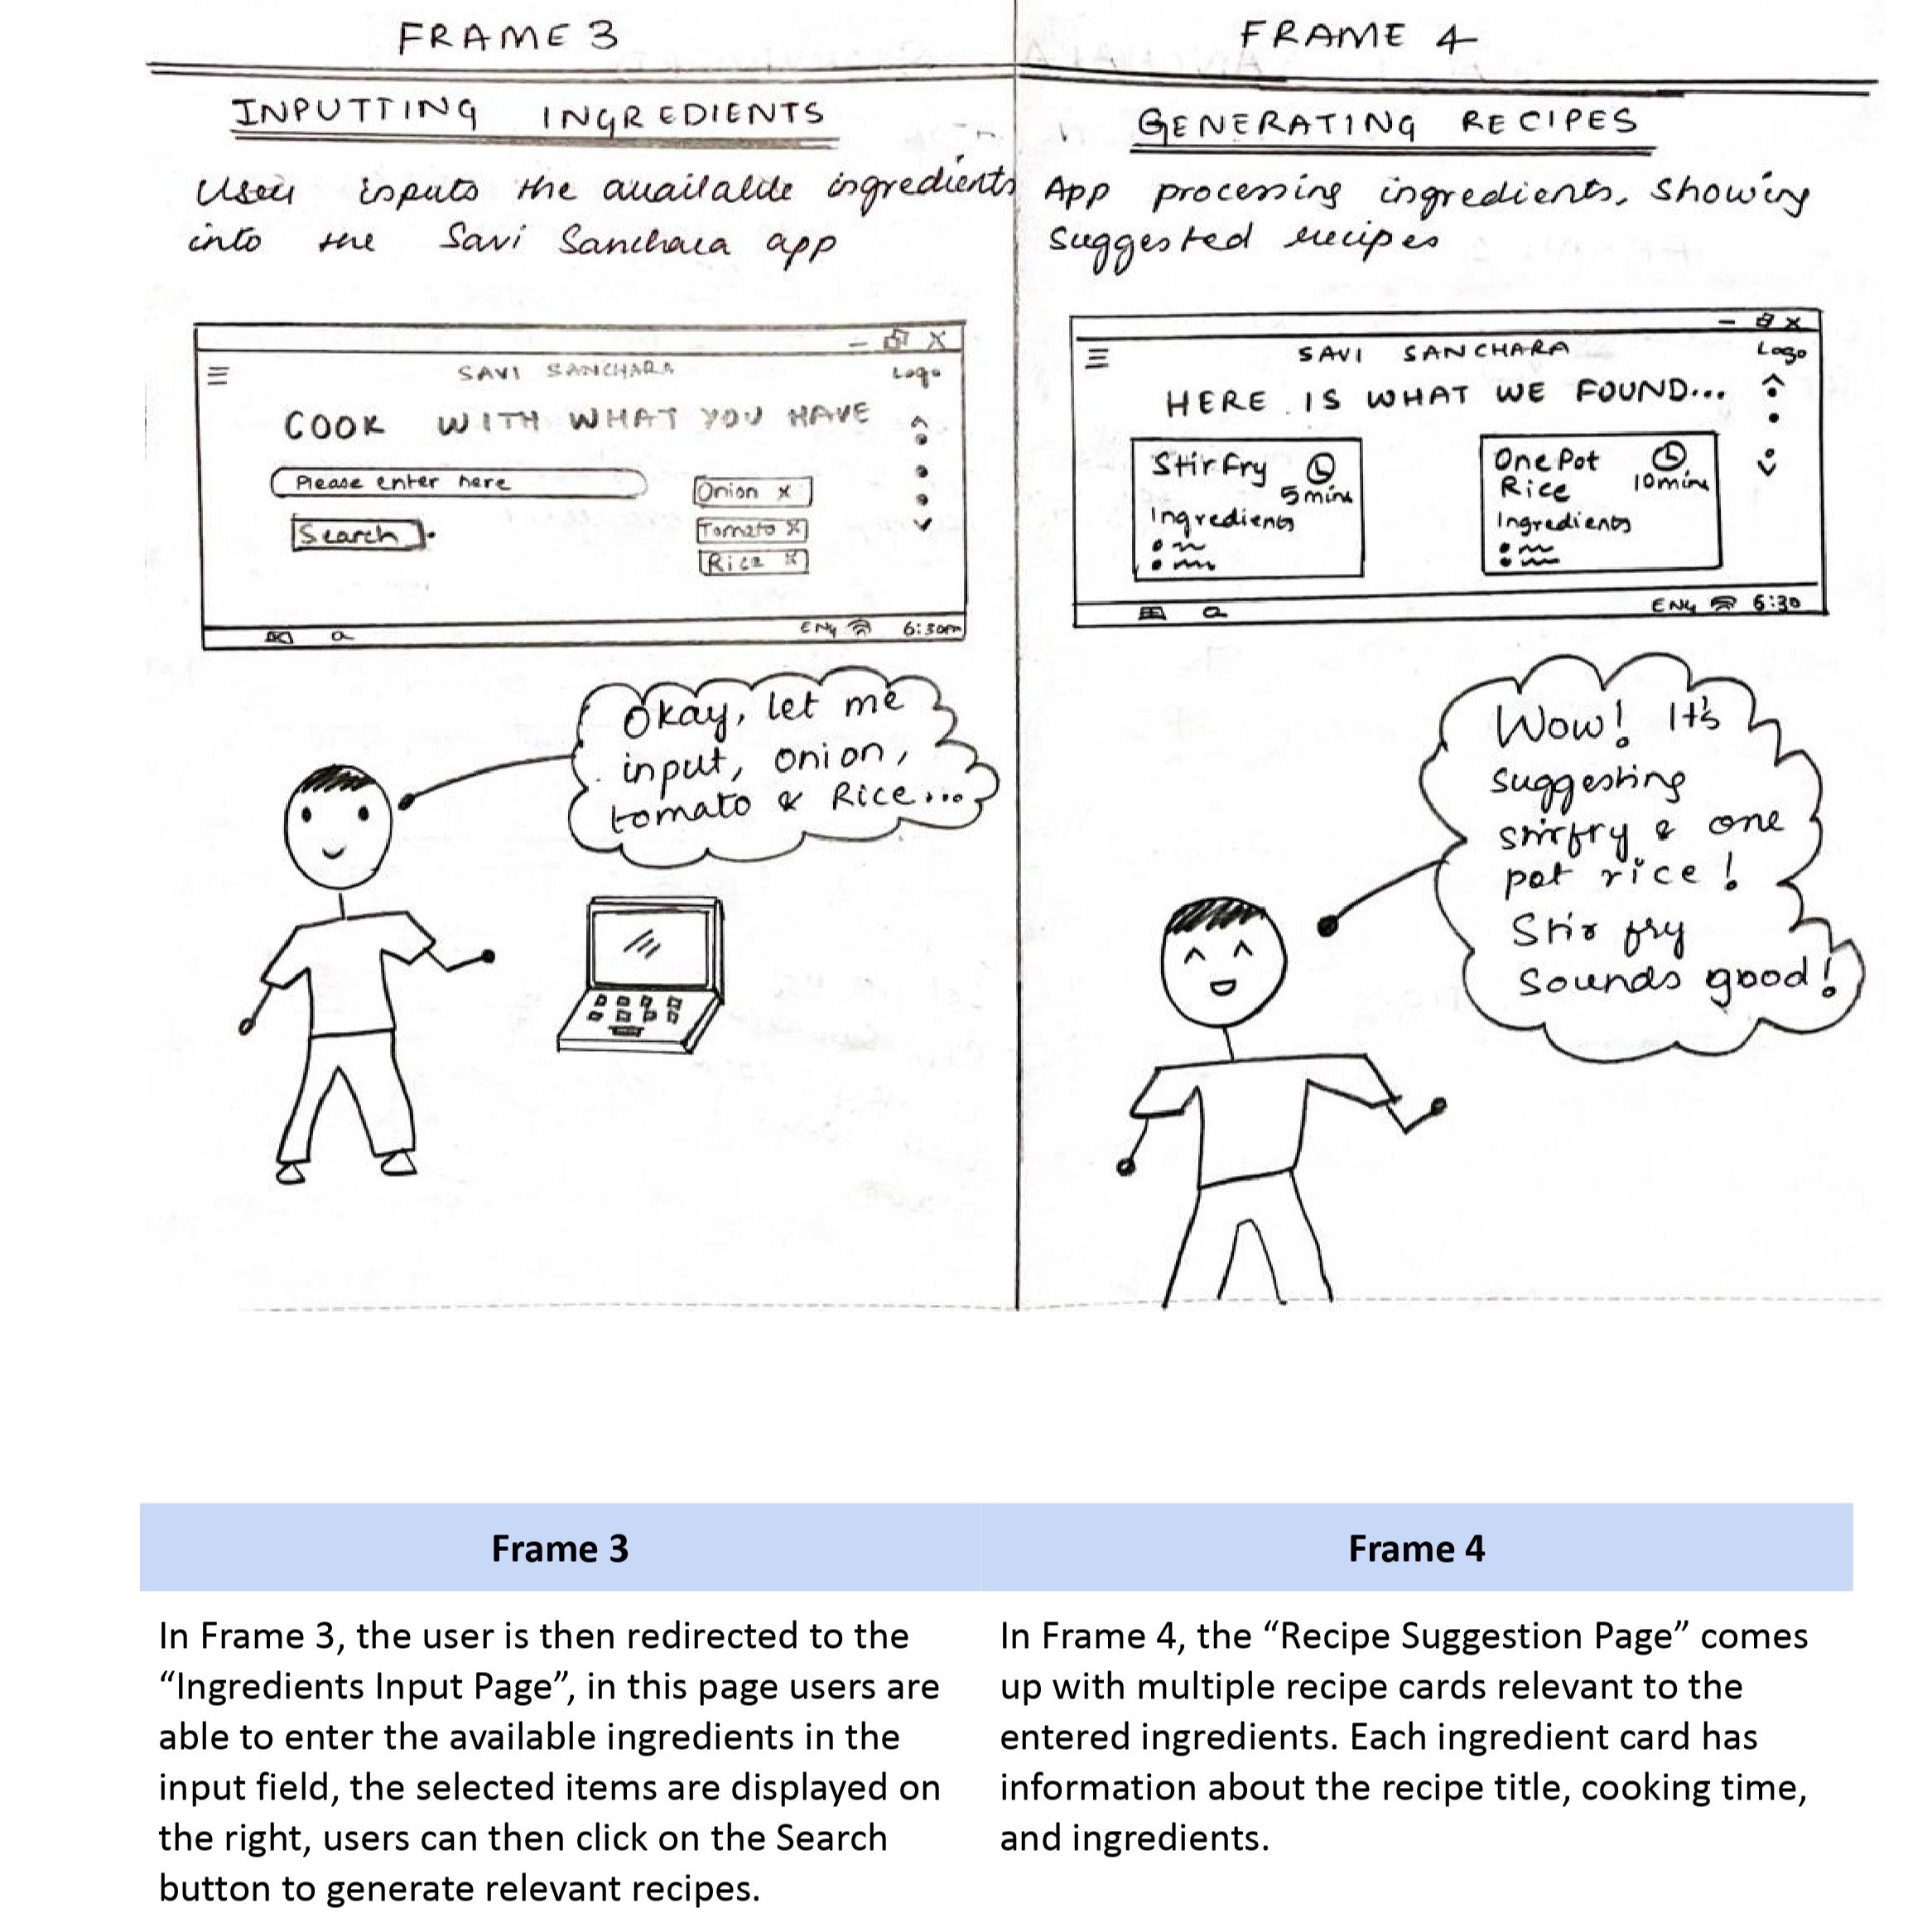 FRAME 3
INPUTTING INGREDIENTS
User inputs the available ingredients
into the Savi Sanchara app
SAVI SANCHARA
Logo
COOK WITH WHAT YOU HAVE
Please enter here
Onion x
Search
Tomato x
Rice x
ENG 6:30pm
Okay, let me
input, onion,
tomato & Rice...
FRAME 4
GENERATING RECIPES
App processing ingredients, showing
suggested recipes
SAVI SANCHARA
Logo
HERE IS WHAT WE FOUND...
Stir Fry
5 mins
Ingredients
One Pot
Rice
10 mins
Ingredients
ENG 6:30
Wow! It's
suggesting
stirfry & one
pot rice!
Stir fry
Sounds good!
Frame 3
In Frame 3, the user is then redirected to the
“Ingredients Input Page”, in this page users are
able to enter the available ingredients in the
input field, the selected items are displayed on
the right, users can then click on the Search
button to generate relevant recipes.
Frame 4
In Frame 4, the “Recipe Suggestion Page” comes
up with multiple recipe cards relevant to the
entered ingredients. Each ingredient card has
information about the recipe title, cooking time,
and ingredients.